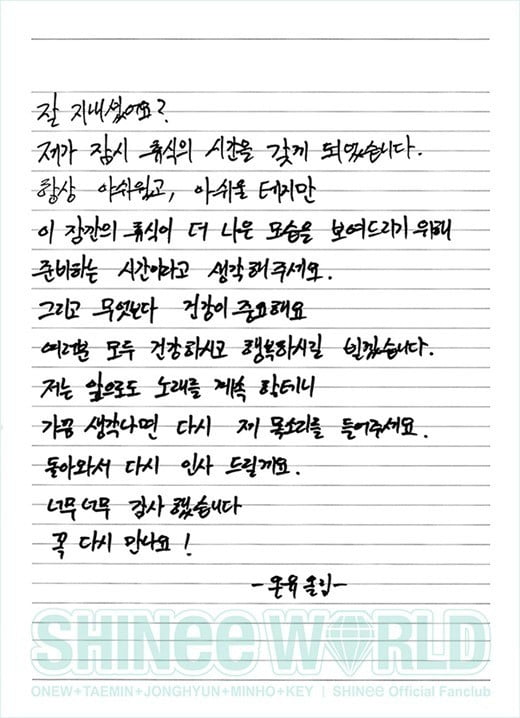 잘 지내셨어요?
제가 잠시 휴식의 시간을 갖게 되었습니다.
항상 아쉬웠고, 아쉬울 테지만
이 잠깐의 휴식이 더 나은 모습을 보여드리기 위해
준비하는 시간이라고 생각해주세요.
그리고 무엇보다 건강이 중요해요
여러분 모두 건강하시고 행복하시길 빌겠습니다.
저는 앞으로도 노래를 계속 할테니
가끔 생각나면 다시 제 목소리를 들어주세요.
돌아와서 다시 인사 드릴게요.
너무너무 감사했습니다
꼭 다시 만나요!
-온유 올림-
SHINee WORLD
ONEW+TAEMIN+JONGHYUN+MINHO+KEY | SHINee Official Fanclub